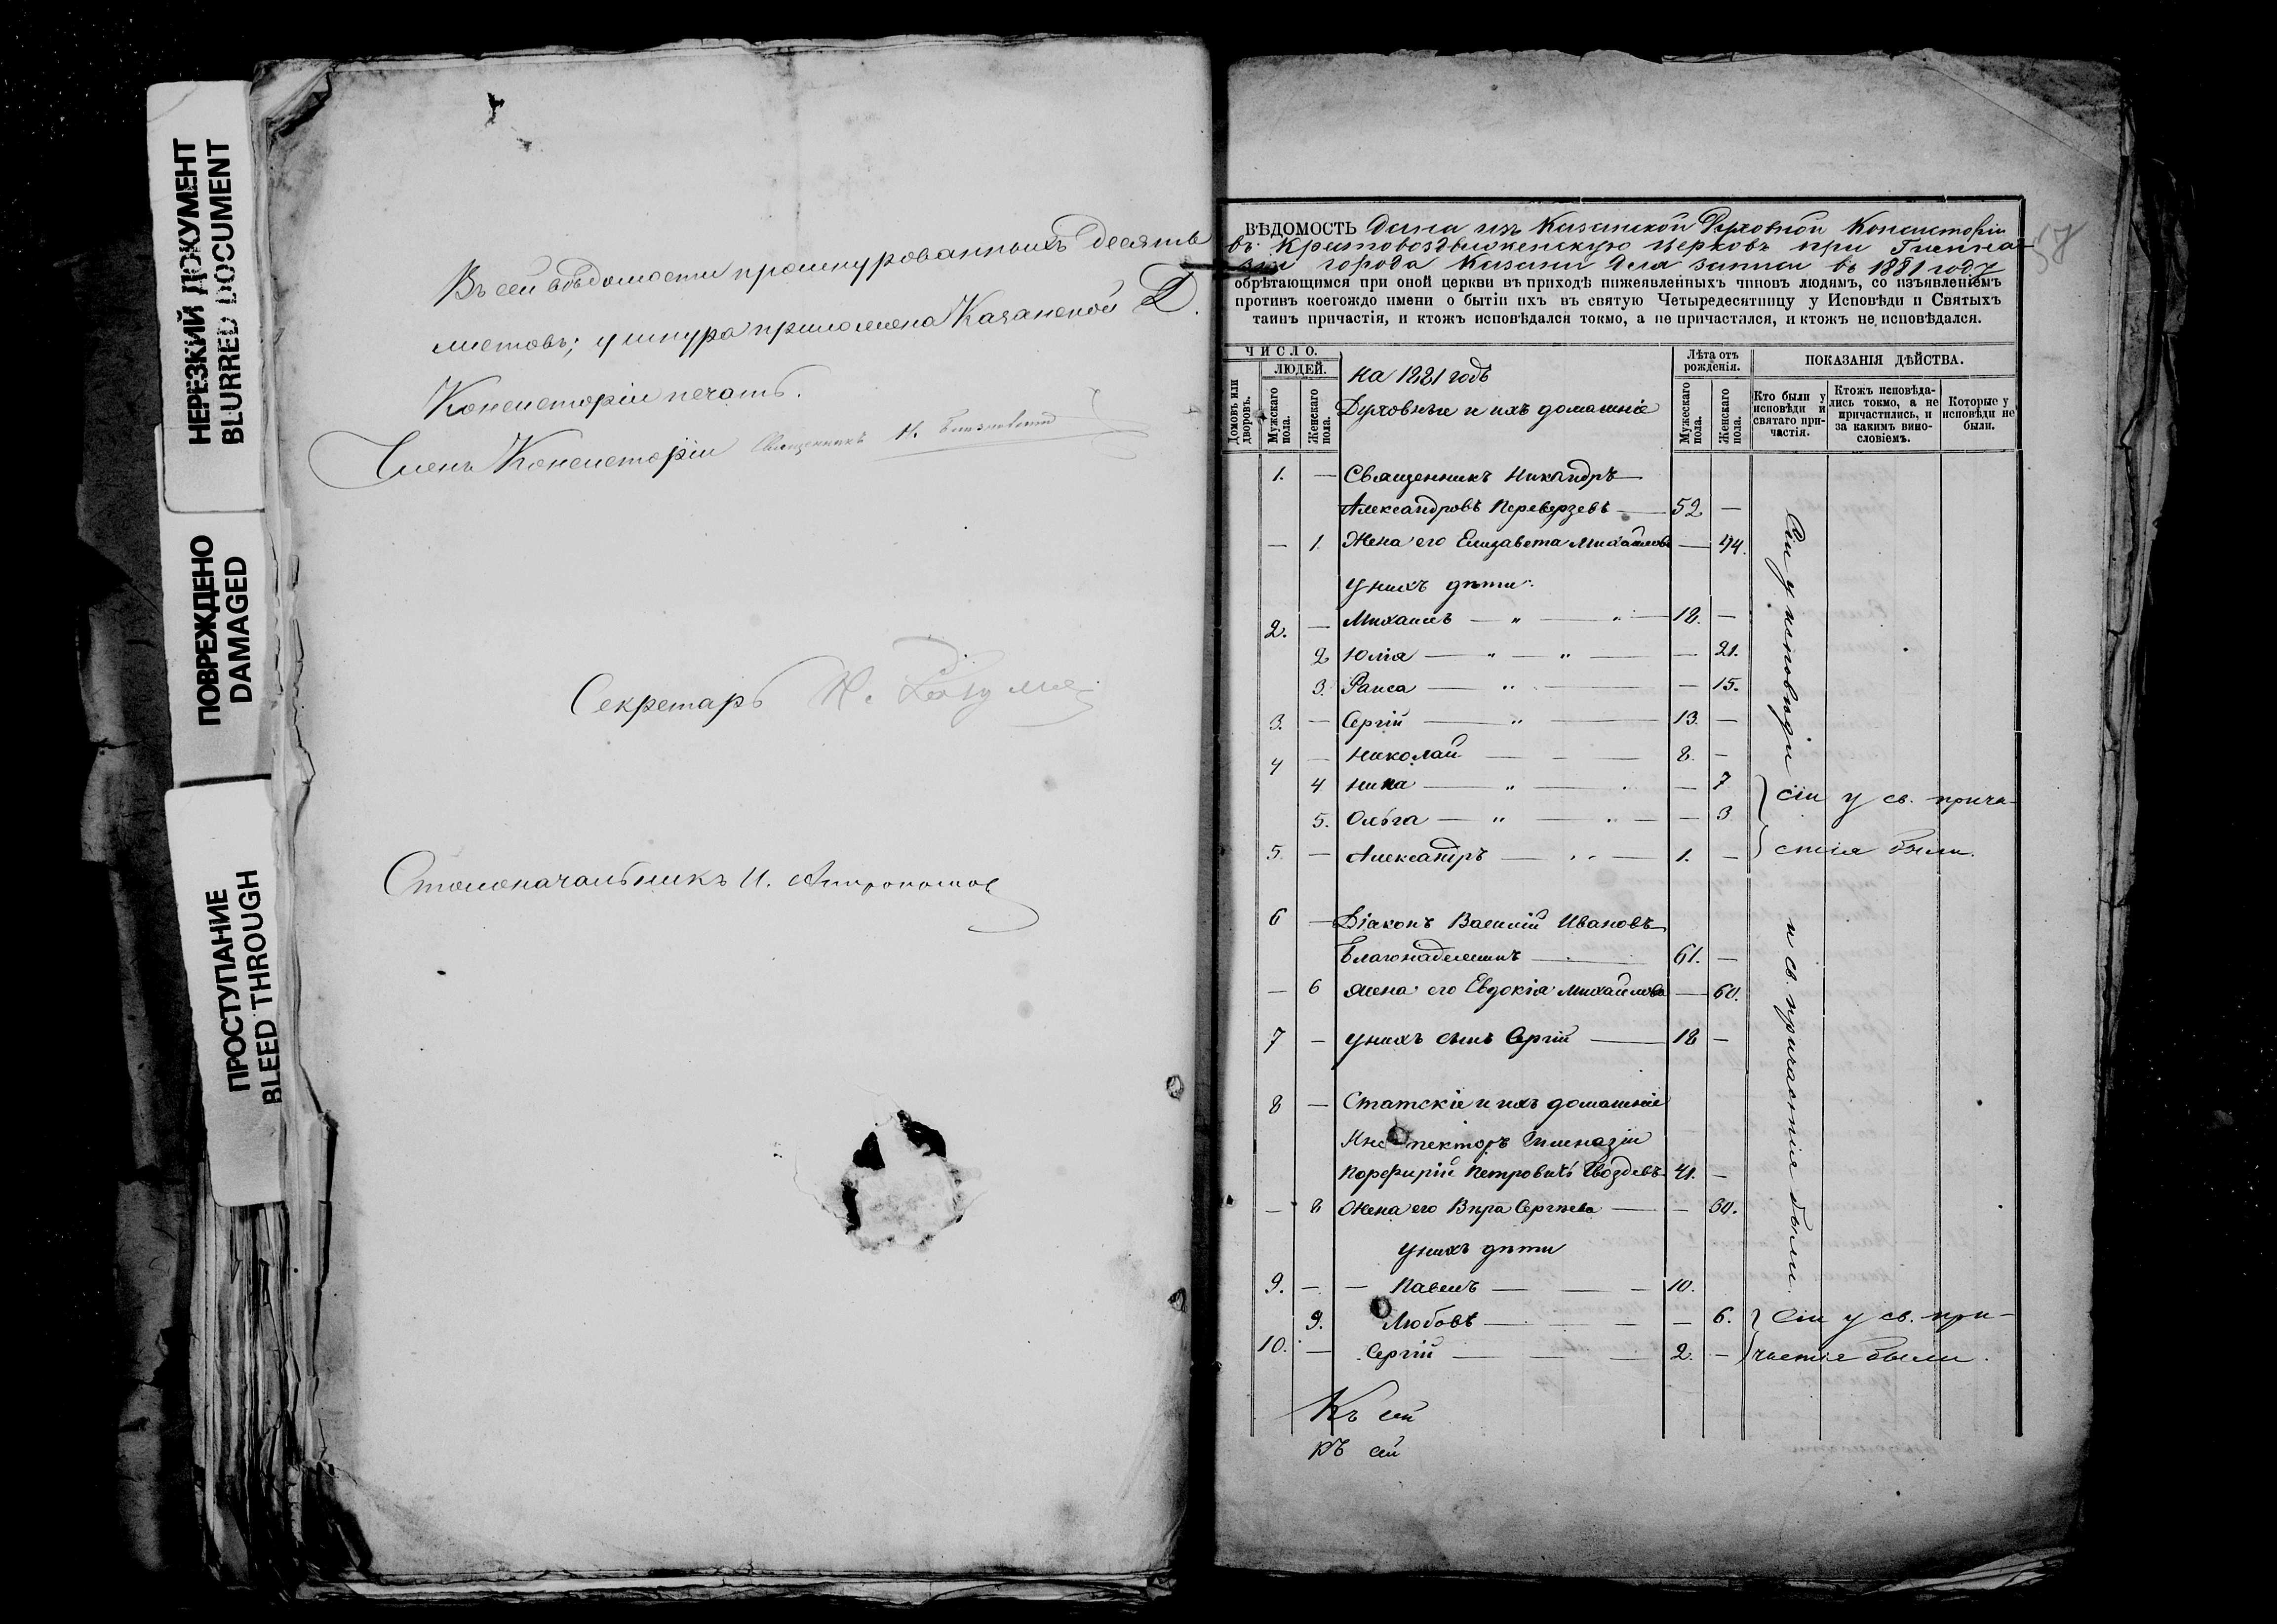 НЕРЕЗКИЙ ДОКУМЕНТ
BLURRED DOCUMENT
ПОВРЕЖДЕНО
DAMAGED
ПРОСТУПАНИЕ
BLEED THROUGH
Въ сей вѣдомости прошнурованныхъ десять
листовъ; у шнура приложена Казанской Д.
Консисторіи печать.
Членъ Консисторіи Священникъ
Секретарь
Столоначальникъ И.
57
ВѢДОМОСТЬ Дана изъ Казанской Духовной Консисторіи
въ Крестовоздвиженскую церковь при Гимна-
зіи города Казани для записи въ 1881 году
обрѣтающимся при оной церкви въ приходѣ нижеявленныхъ чиновъ людямъ, со изъявленіемъ
противъ коегождо имени о бытіи ихъ въ святую Четыредесятницу у Исповѣди и Святыхъ
таинъ причастія, и ктожъ исповѣдался токмо, а не причастился, и ктожъ не исповѣдался.
ЧИСЛО.
Домовъ или дворовъ.
ЛЮДЕЙ.
Мужскаго пола.
Женскаго пола.
на 1881 годъ
Духовные и ихъ домашніе
Лѣта отъ рожденія.
Мужескаго пола.
Женскаго пола.
ПОКАЗАНІЯ ДѢЙСТВА.
Кто были у исповѣди и святаго причастія.
Ктожъ исповѣдались токмо, а не причастились, и за какимъ винословіемъ.
Которые у исповѣди не были.
1. — Священникъ Никандръ
Александровъ Переверзевъ — 52 —
— 1. Жена его Елизавета Михайлова — 44.
У нихъ дѣти:
2. — Михаилъ — „ — „ — 18. —
2 Юлія — „ — „ — — 21.
3. Раиса — „ — — 15.
3. — Сергій — „ — 13. —
4 — Николай — — — 8. —
4 Нина — „ — — 7
5. Ольга — „ — „ — — 3
5. — Александръ — „ — 1. —
Сіи у исповѣди
и св. причастія были.
сіи у св. прича-
стія были.
6 — Діаконъ Василій Ивановъ
Благонадеждинъ — 61. —
— 6 жена его Евдокія Михайлова — 60.
7 — у нихъ сынъ Сергій — 18 —
8 — Статскіе и ихъ домашніе
Инспекторъ Гимназіи
Порфирій Петровичъ Гвоздевъ 41. —
— 8 Жена его Вѣра Сергѣева — — 30.
У нихъ дѣти
9. — — Павелъ — — — 10.
9. Любовь — — — — 6.
10. — Сергій — — — 2. —
Сіи у св. при-
частія были.
Къ сей
къ сей